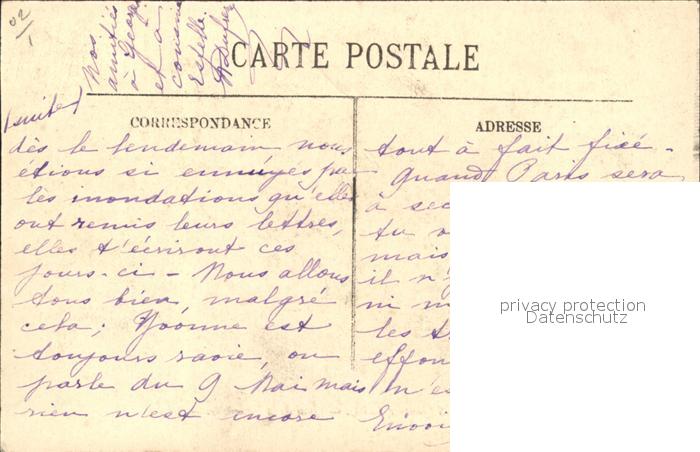 02
1
Nos
amitiés
à
et à
cousine
Estelle.
CARTE POSTALE
(suite)
CORRESPONDANCE
dès le lendemain nous
étions si ennuyés par
les inondations qu'elles
ont remis leurs lettres,
elles t'écriront ces
jours-ci - Nous allons
tous bien, malgré
cela; Yvonne est
toujours ravie, on
parle du 9 Mai mais
rien n'est encore
ADRESSE
tout à fait fixé -
Quand Paris sera
à sec
tu
mais
il n'
ni m
les
effon
n'es
Envoi
privacy protection
Datenschutz